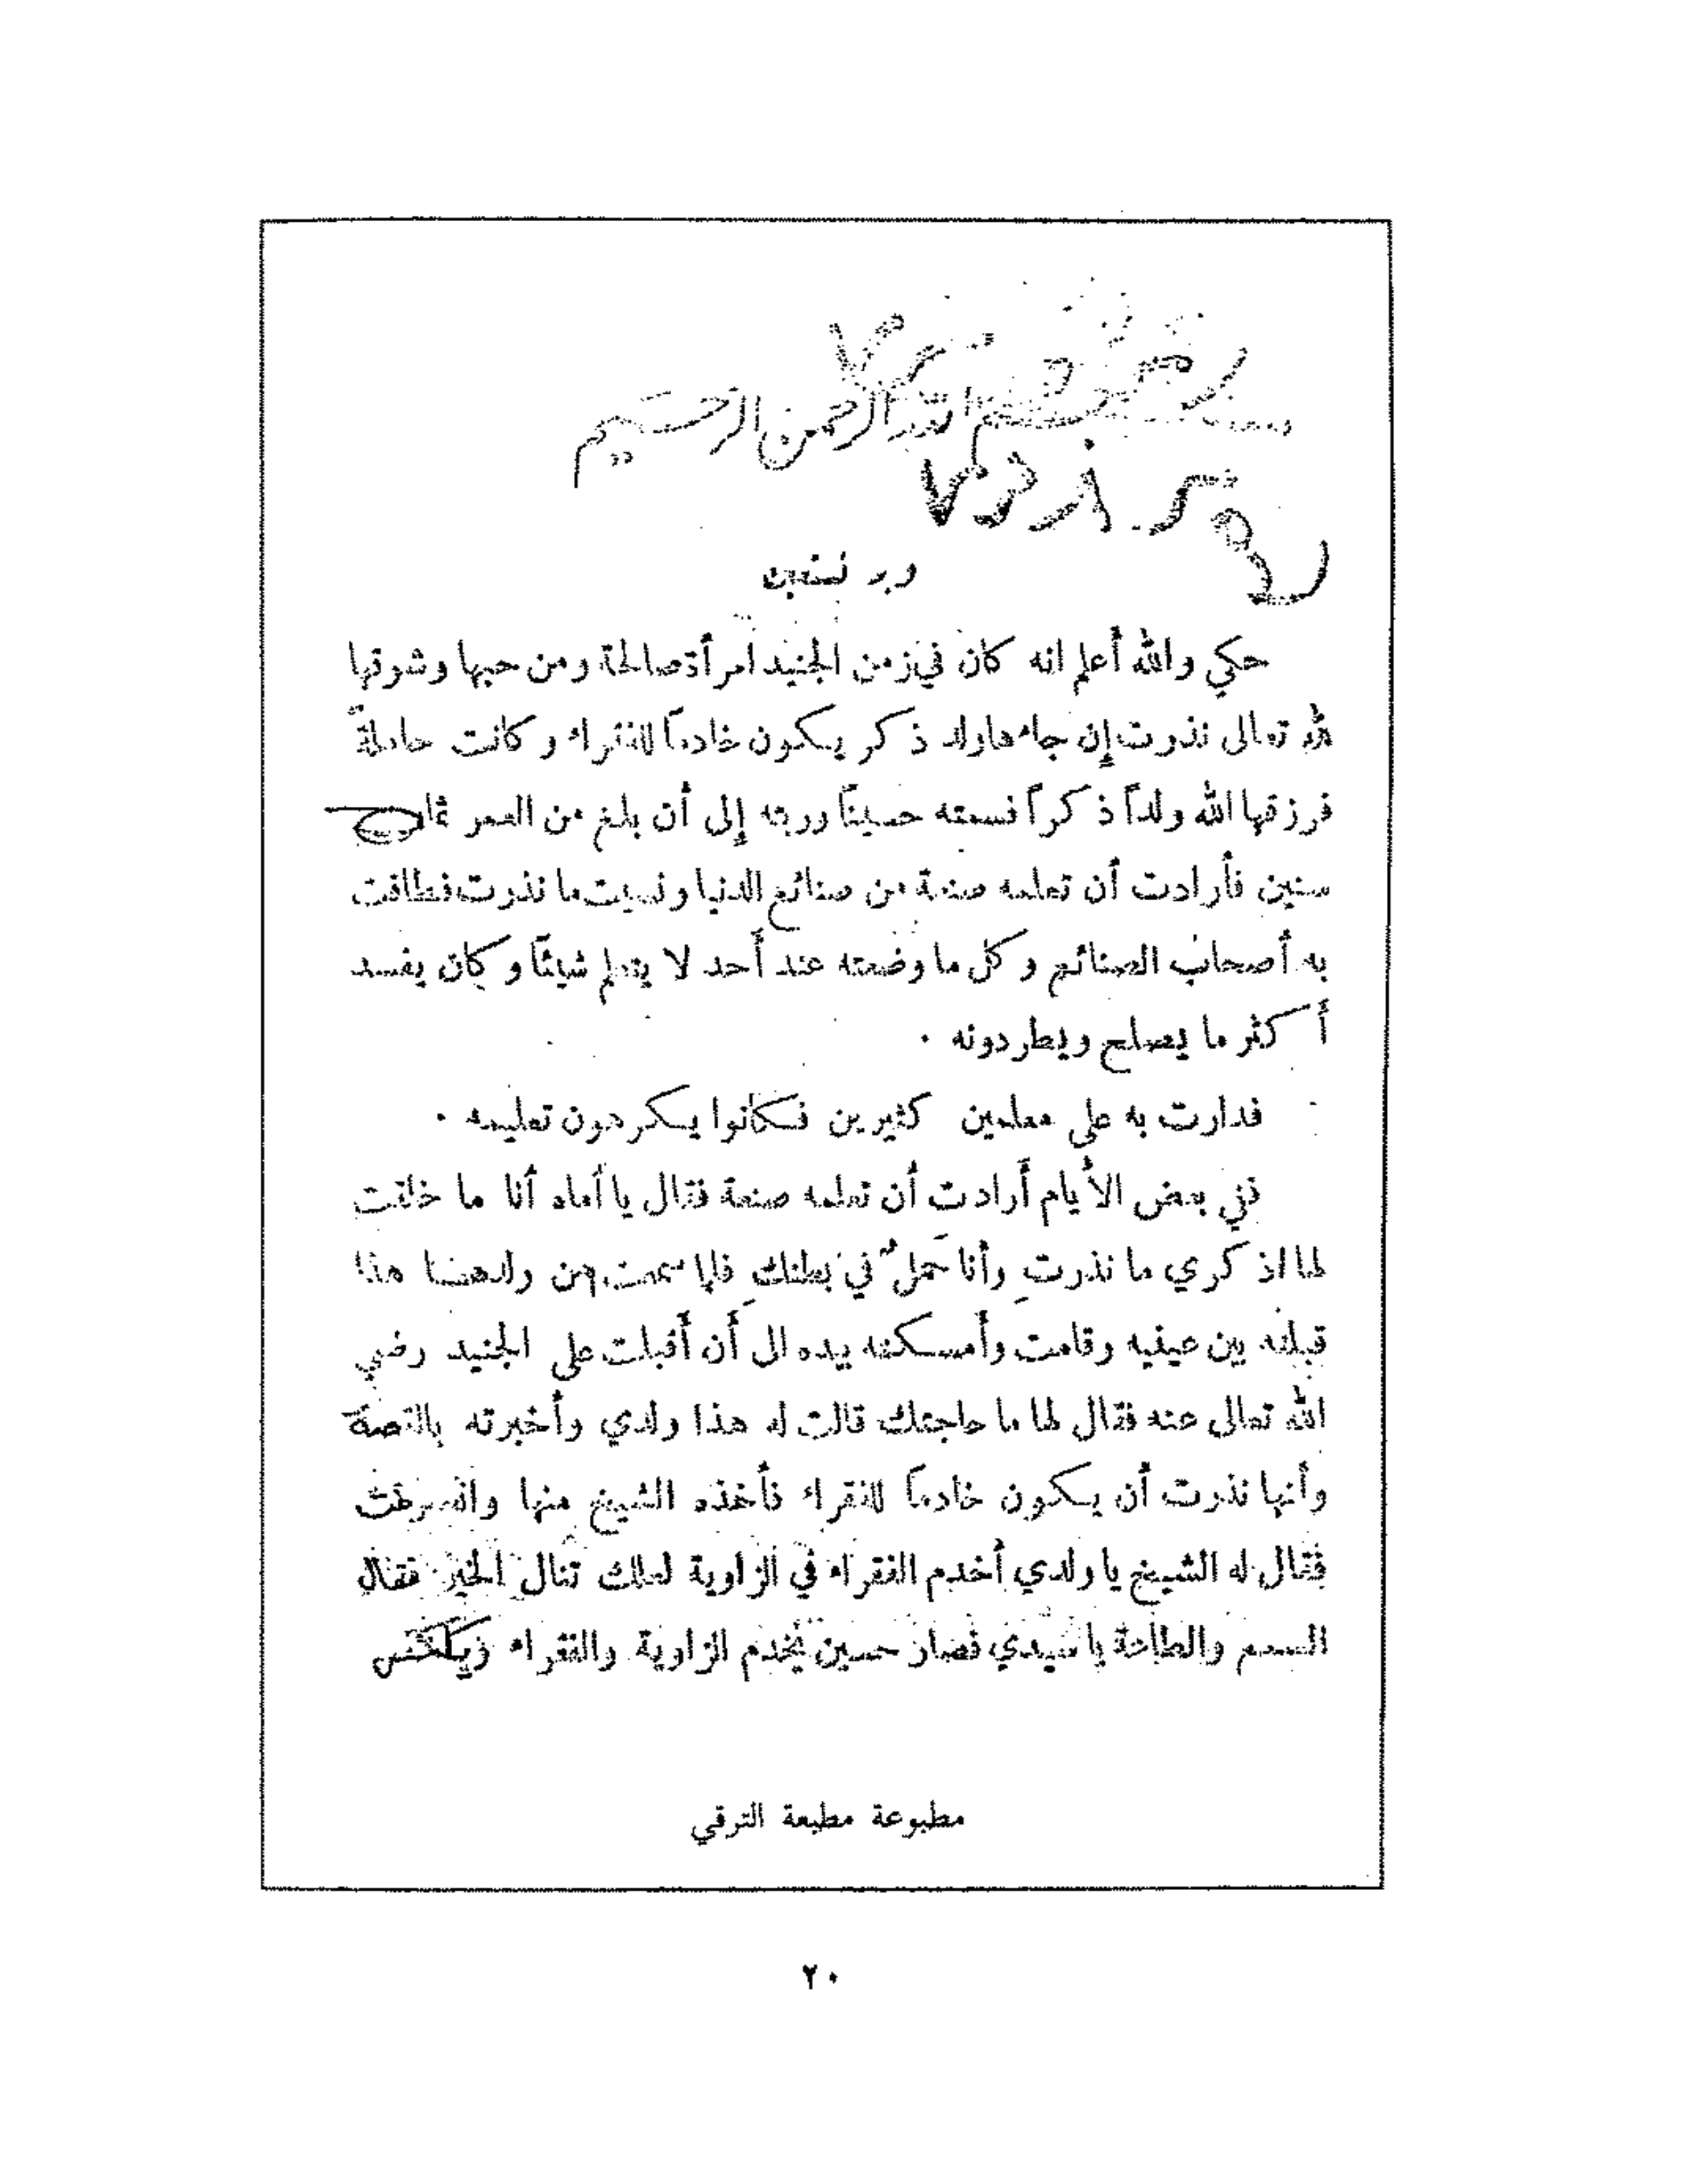 بسم الله الرحمن الرحيم
وبه نستعين
حكي والله أعلم انه كان في زمن الجنيد امرأة صالحة ومن حبها وشوقها
لله تعالى نذرت إن جاءها ولد ذكر يكون خادماً للفقراء وكانت حاملةً
فرزقها الله ولداً ذكراً فسمته حسيناً وربته إلى أن بلغ من العمر ثمان
سنين فأرادت أن تعلمه صنعة من صنائع الدنيا ونسيت ما نذرت فطافت
به أصحاب الصنائع وكل ما وضعته عند أحد لا يتعلم شيئاً وكان يفسد
أكثر ما يصلح ويطردونه .
فدارت به على معلمين كثيرين فكانوا يكرهون تعليمه .
ففي بعض الأيام أرادت أن تعلمه صنعة فقال يا أماه أنا ما خلقت
لها اذكري ما نذرتِ وأنا حملٌ في بطنكِ فلما سمعت من ولدها هذا
قبلته بين عينيه وقامت وأمسكته بيده الى أن أقبلت على الجنيد رضي
الله تعالى عنه فقال لها ما حاجتك قالت له هذا ولدي وأخبرته بالقصة
وأنها نذرت أن يكون خادماً للفقراء فأخذه الشيخ منها وانصرفت
فقال له الشيخ يا ولدي أخدم الفقراء في الزاوية لعلك تنال الخير فقال
السمع والطاعة يا سيدي فصار حسين يخدم الزاوية والفقراء ويكنس
مطبوعة مطبعة الترقي
٢٠